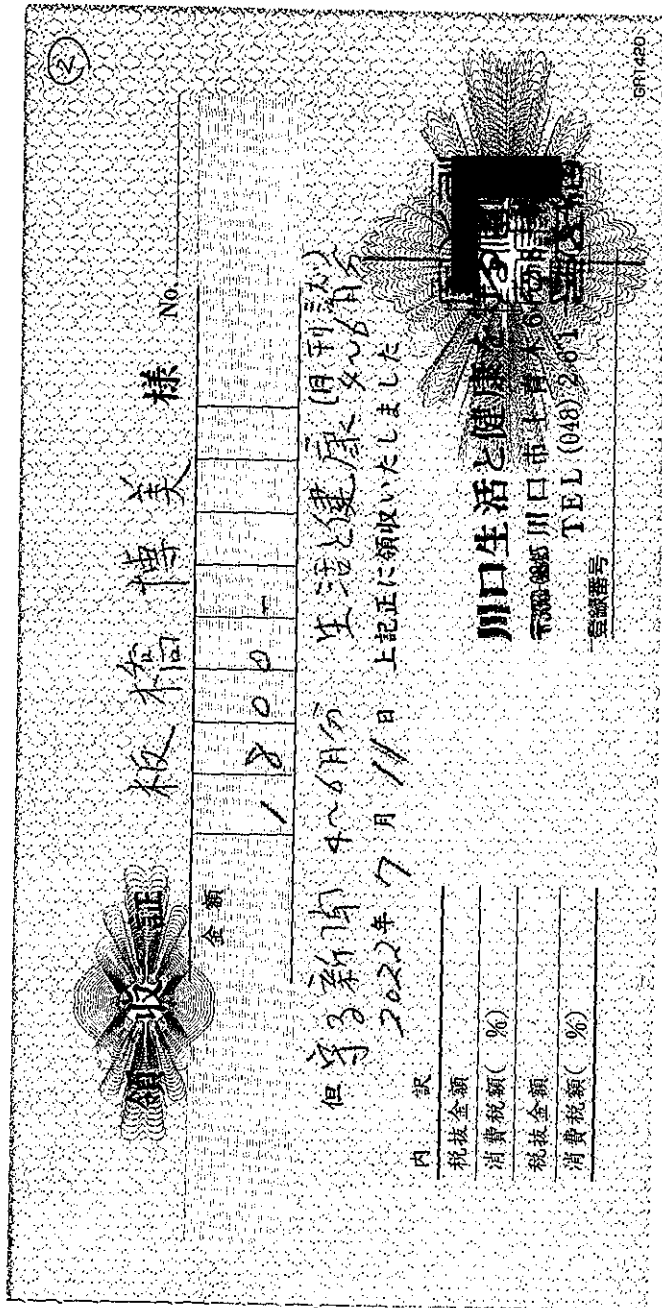 ②
領収証
板橋博美 様
No.
金額
1800-
但 守る新聞 4〜6月分 生活と健康(月刊誌)
4〜6月分
2022年 7月 11日 上記正に領収いたしました
内訳
税抜金額
消費税額( %)
税抜金額
消費税額( %)
川口生活と健康を守る
川口市上青木6
TEL (048) 261
登録番号
GR1420